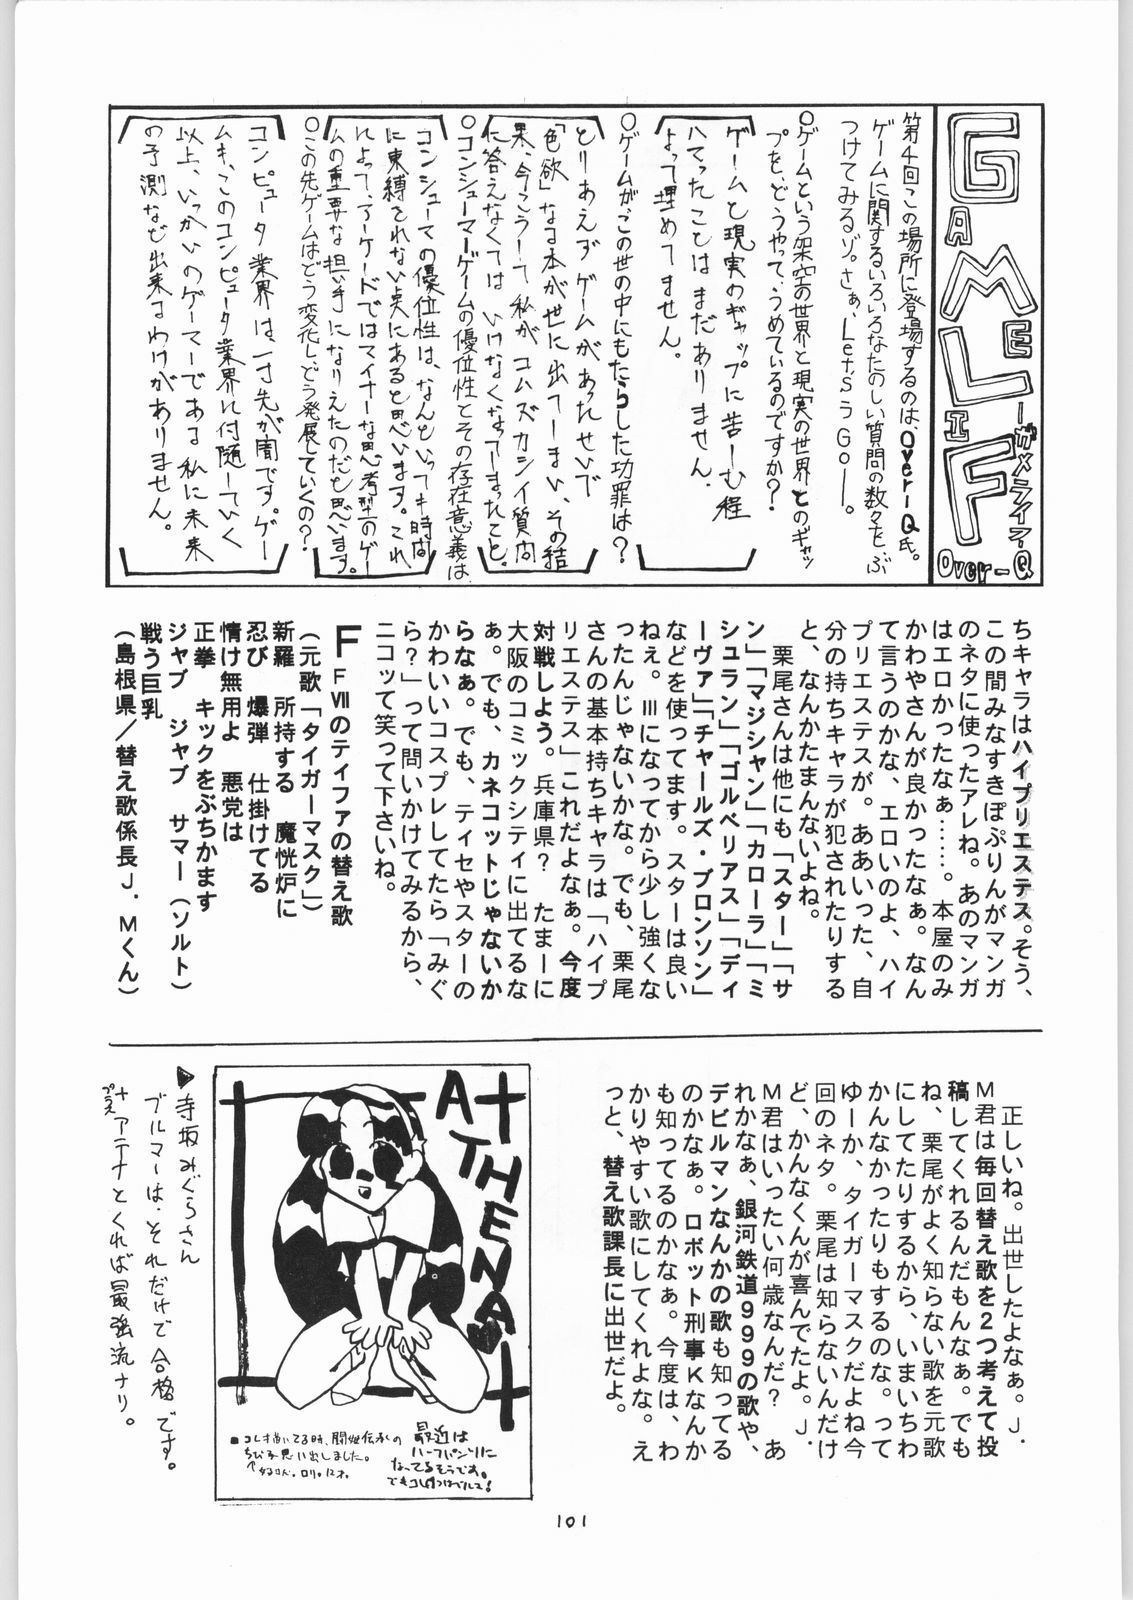 GAME LIFE
ーガメライフ
Over-Q
第4回この場所に登場するのは、Over-Q氏。
ゲームに関するいろいろなたのしい質問の数々をぶ
つけてみるゾ。さぁ、Let'sうGo―。
○ゲームという架空の世界と現実の世界とのギャッ
プを、どうやって、うめているのですか?
ゲームと現実のギャップに苦しむ程
ハマったことはまだありません。
よって埋めてません。
○ゲームが、この世の中にもたらした功罪は?
とりあえずゲームがあったせいで
「色欲」なる本が世に出てしまい、その結
果、今こうして私がコムズカシイ質問
に答えなくてはいけなくなってしまったこと。
○コンシューマーゲームの優位性とその存在意義は
コンシューマの優位性は、なんといっても時間
に束縛されない点にあると思います。これ
によって、アーケードではマイナーな思考型のゲー
ムの重要な担い手になりえたのだと思います。
○この先ゲームはどう変化し、どう発展していくの?
コンピュータ業界は、一寸先が闇です。ゲー
ムも、このコンピュータ業界に付随していく
以上、いっかいのゲーマーである私に未来
の予測など出来るわけがありません。
ちキャラはハイプリエステス。そう、
この間みなすきぽぷりんがマンガ
のネタに使ったアレね。あのマンガ
はエロかったなぁ……。本屋のみ
かわやさんが良かったなぁ。なん
て言うのかな、エロいのよ、ハイ
プリエステスが。ああいった、自
分の持ちキャラが犯されたりする
と、なんかたまんないよね。
栗尾さんは他にも「スター」「サ
ン」「マジシャン」「カローラ」「ミ
シュラン」「ゴルベリアス」「ディ
ーヴァ」「チャールズ・ブロンソン」
などを使ってます。スターは良い
ねぇ。Ⅲになってから少し強くな
ったんじゃないかな。でも、栗尾
さんの基本持ちキャラは「ハイプ
リエステス」これだよなぁ。今度
対戦しよう。兵庫県? たまーに
大阪のコミックシティに出てるな
ぁ。でも、カネコットじゃないか
らなぁ。でも、ティセやスターの
かわいいコスプレしてたら「みぐ
ら?」って問いかけてみるから、
ニコッて笑って下さいね。
FFⅦのティファの替え歌
(元歌「タイガーマスク」)
新羅 所持する 魔恍炉に
忍び 爆弾 仕掛けてる
情け無用よ 悪党は
正拳 キックをぶちかます
ジャブ ジャブ サマー(ソルト)
戦う巨乳
(島根県/替え歌係長J.Mくん)
正しいね。出世したよなぁ。J.
M君は毎回替え歌を2つ考えて投
稿してくれるんだもんなぁ。でも
ね、栗尾がよく知らない歌を元歌
にしてたりするから、いまいちわ
かんなかったりもするのな。って
ゆーか、タイガーマスクだよね今
回のネタ。栗尾は知らないんだけ
ど、かんなくんが喜んでたよ。J.
M君はいったい何歳なんだ? あ
れかなぁ、銀河鉄道999の歌や、
デビルマンなんかの歌も知ってる
のかなぁ。ロボット刑事Kなんか
も知ってるのかなぁ。今度は、わ
かりやすい歌にしてくれよな。え
っと、替え歌課長に出世だよ。
ATHENA
最近は
ハーフパンツに
なってるそうです。
■コレを描いてる時、闘姫伝承の
ちび子思い出しました。
▶寺坂みぐらさん
ブルマーは、それだけで合格です。
+アテナとくれば最強流ナリ。
プラス
101